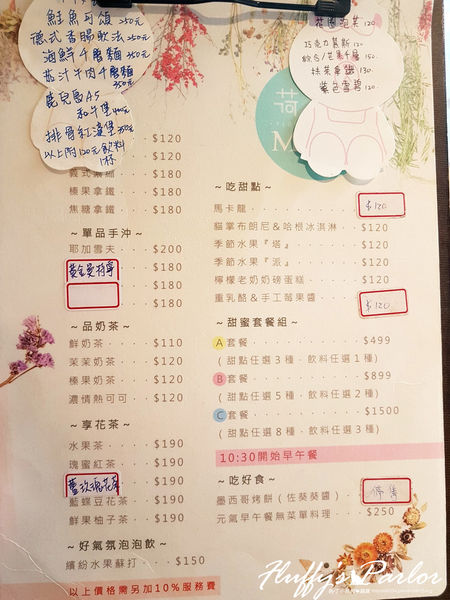 鮭魚可頌 250元
德式香腸軟法 250元
海鮮千層麵 350元
茄汁牛肉千層麵 350元
鹿兒島A5
和牛堡 400元
排骨紅漢堡 350元
以上附120元飲料1杯
花園泡芙 120
巧克力慕斯 120
綜合/芒果千層 150
抹茶拿鐵 130
紫色雪碧 120
荷
M
$120
$120
義式濃縮 $180
榛果拿鐵 $180
焦糖拿鐵 $180
～單品手沖～
耶加雪夫 $200
黃金曼特寧 $180
$180
～品奶茶～
鮮奶茶 $110
茉茉奶茶 $120
榛果奶茶 $120
濃情熱可可 $120
～享花茶～
水果茶 $190
瑰蜜紅茶 $190
藍玫瑰花茶 $190
藍蝶豆花茶 $190
鮮果柚子茶 $190
～好氣氛泡泡飲～
繽紛水果蘇打 $150
以上價格需另加10%服務費
～吃甜點～
馬卡龍 $120
貓掌布朗尼＆哈根冰淇淋 $120
季節水果『塔』 $120
季節水果『派』 $120
檸檬老奶奶磅蛋糕 $120
重乳酪＆手工莓果醬 $120
～甜蜜套餐組～
A 套餐 $499
(甜點任選3種，飲料任選1種)
B 套餐 $899
(甜點任選5種，飲料任選2種)
C 套餐 $1500
(甜點任選8種，飲料任選3種)
10:30開始早午餐
～吃好食～
墨西哥烤餅(佐葵葵醬) 停售
元氣早午餐無菜單料理 $250
Fluffy's Parlor